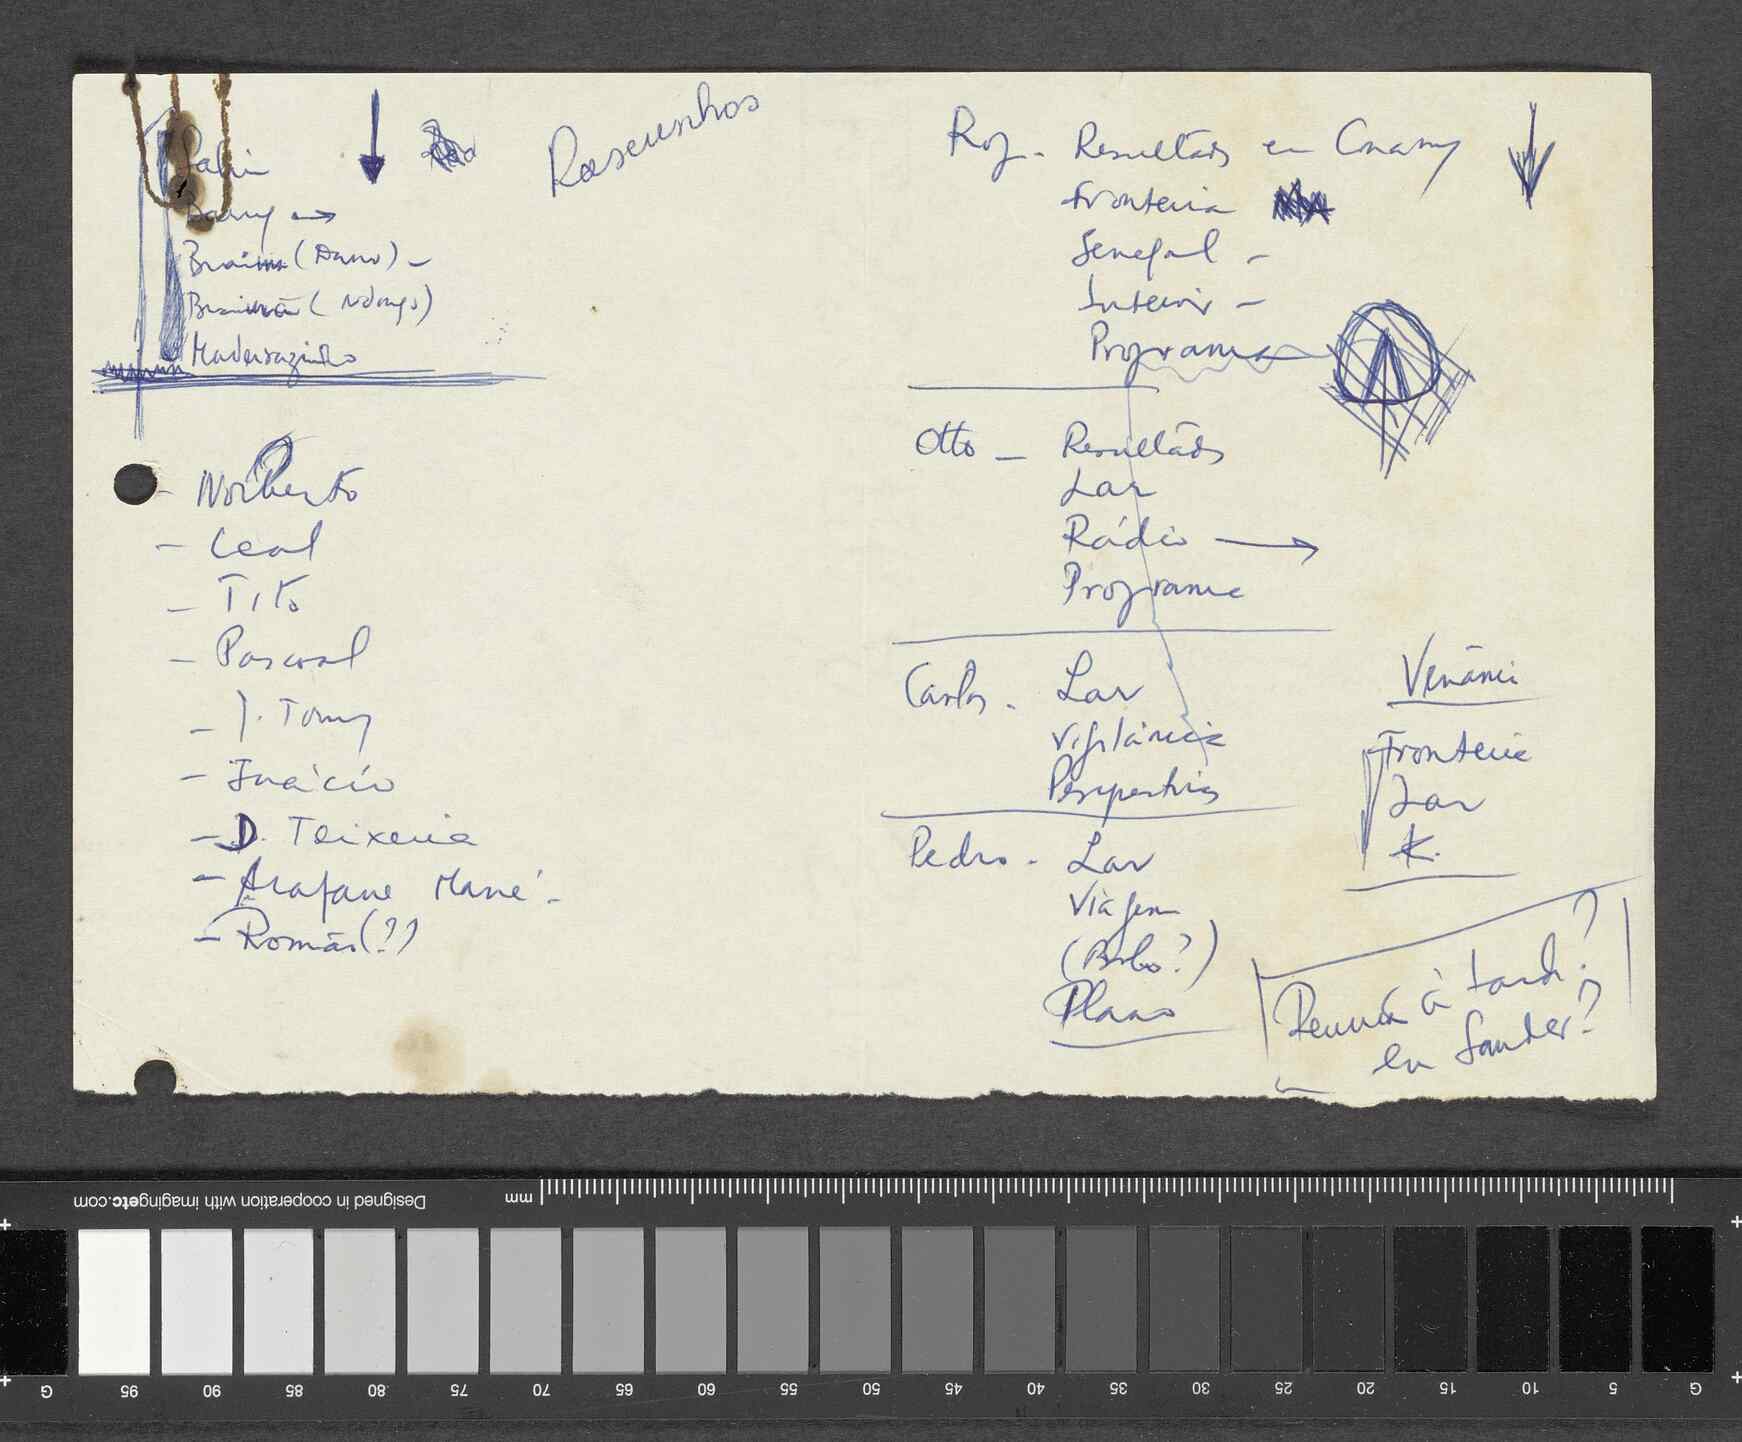 Rascunhos
Barry →
Braima (Dano) –
Braima (Ndongo)
Norberto
– Leal
– Tito
– Pascoal
– J. Tomy
– Inácio
– D. Teixeira
– Arafane Mané –
– Romão (??)
– Resultados em Conacry
Fronteira
Senegal –
Interior –
Programa
Otto – Resultados
Lar
Rádio →
Programa
Carlos – Lar
Vigilância
Perspectivas
Pedro – Lar
Viagem
(Bobo?)
Plano
Venânci
Fronteira
Lar
K.
Reunião à tarde?
em Sander?
Designed in cooperation with imagingetc.com
mm
G 95 90 85 80 75 70 65 60 55 50 45 40 35 30 25 20 15 10 5 G